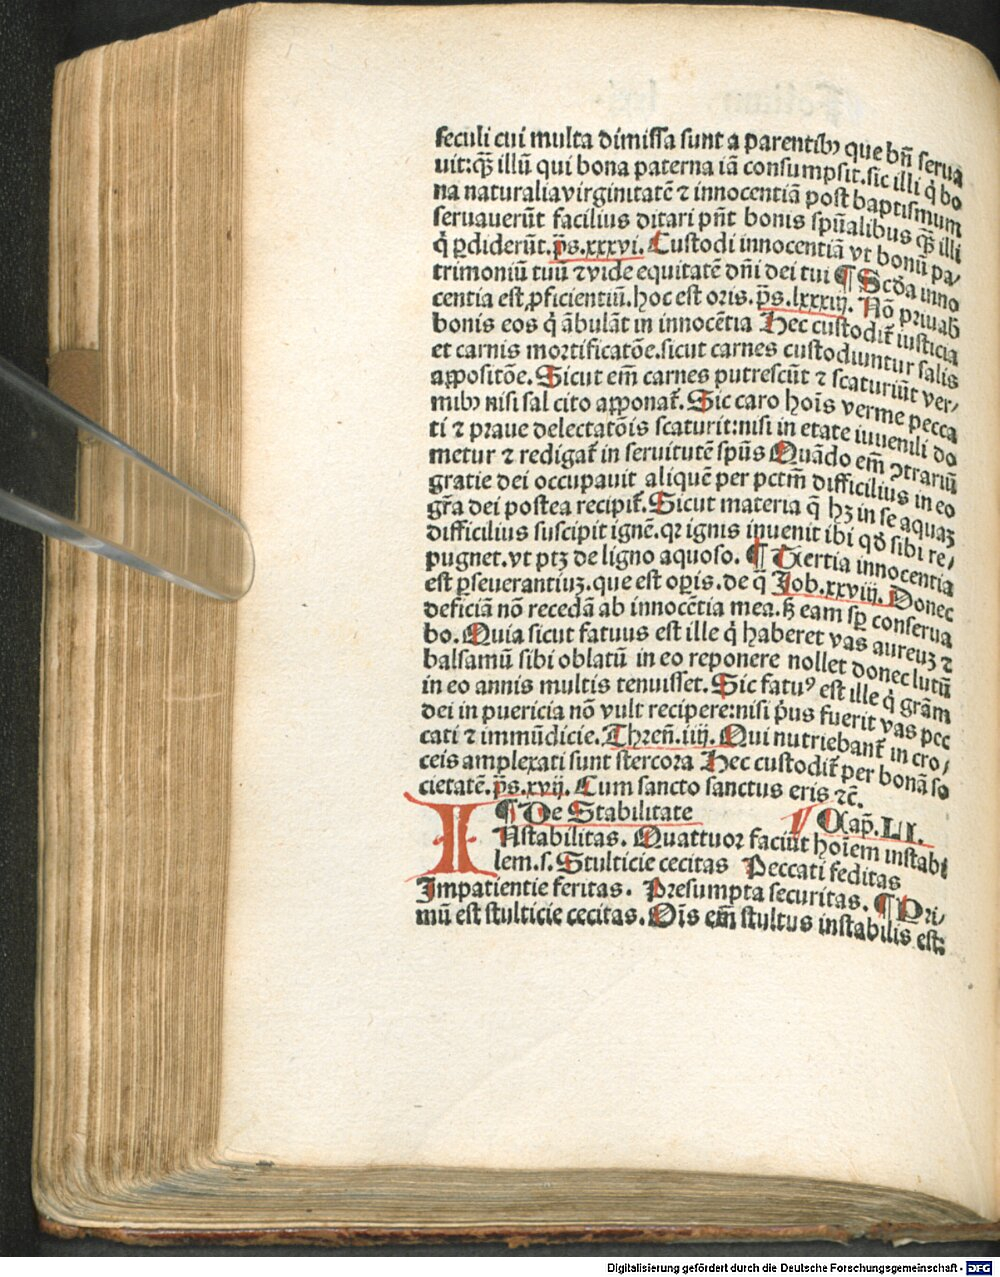 seculi cui multa dimissa sunt a parentibꝫ que bn̄ serua
uit:qꝫ̄ illū qui bona paterna iā consumpsit.sic illi q̇ bo
na naturalia virginitatē ⁊ innocentiā post baptismum
seruauerūt facilius ditari pn̄t bonis spūalibus qꝫ̄ illi
q̇ ꝑdiderūt.p̄s.xxxvi. Custodi innocentiā vt bonū pa⸗
trimoniū tuū ⁊ vide equitatē dn̄i dei tui ¶ Scd̄a inno
centia est ꝓficientiū.hoc est oris.p̄s.lxxxiij. Nō priuab̄
bonis eos q̇ ābulāt in innocētia Hec custodit̄ iusticia
et carnis mortificatōe.sicut carnes custodiuntur salis
appositōe. Sicut em̄ carnes putrescūt ⁊ scaturiūt ver⸗
mibꝫ nisi sal cito apponat̄. Sic caro hoīs verme pecca
ti ⁊ praue delectatōis scaturit:nisi in etate iuuenili do
metur ⁊ redigat̄ in seruitutē spūs Quādo em̄ ꝯtrariū
gratie dei occupauit aliquē per pctm̄ difficilius in eo
gr̄a dei postea recipit̄. Sicut materia q̄ hꝫ in se aquaꝫ
difficilius suscipit ignē.qꝛ ignis inuenit ibi qd̄ sibi re⸗
pugnet.vt ptꝫ de ligno aquoso. ¶ Tertia innocentia
est ꝑseuerantiuꝫ.que est oꝑis.de q̄ Job.xxviij. Donec
deficiā nō recedā ab innocētia mea.sꝫ eam sꝑ conserua
bo. Quia sicut fatuus est ille q̇ haberet vas aureuꝫ ⁊
balsamū sibi oblatū in eo reponere nollet donec lutū
in eo annis multis tenuisset. Sic fatuꝰ est ille q̇ grām
dei in puericia nō vult recipere:nisi p̓us fuerit vas pec
cati ⁊ immūdicie. Thren̄.iiij. Qui nutriebant̄ in cro⸗
ceis amplexati sunt stercora Hec custodit̄ per bonā so
cietatē.p̄s.xvij. Cum sancto sanctus eris ⁊c̄.
¶ De Stabilitate Cap̄.LI.
INstabilitas. Quattuor faciūt hoīem instabi
lem.s. Stulticie cecitas Peccati feditas
Impatientie feritas. Presumpta securitas. ¶ Pri⸗
mū est stulticie cecitas. Oīs em̄ stultus instabilis est:
Digitalisierung gefördert durch die Deutsche Forschungsgemeinschaft - DFG